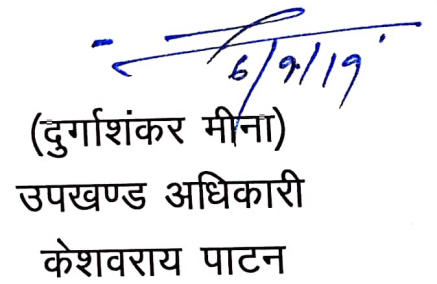 6/9/19
(दुर्गाशंकर मीना)
उपखण्ड अधिकारी
केशवराय पाटन